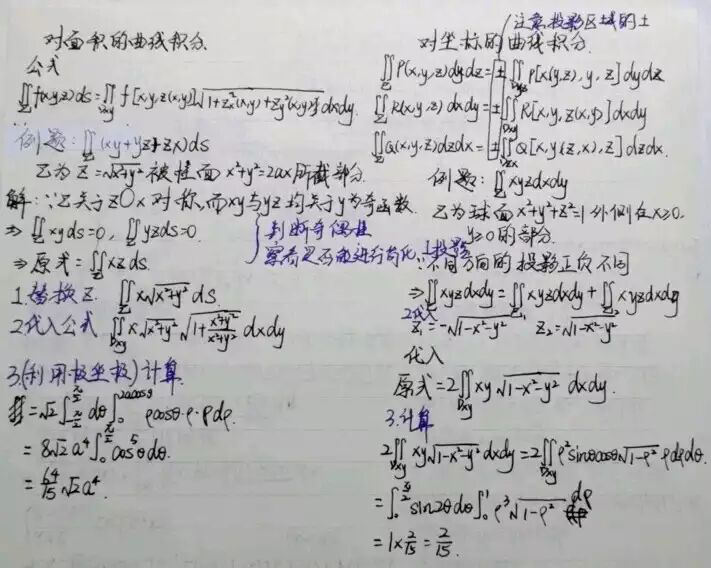 对面积的曲线积分.
公式
∬_Σ f(x,y,z)ds=∬_Dxy f[x,y,z(x,y)]√(1+z_x²(x,y)+z_y²(x,y)) dxdy.
例题: ∬_Σ (xy+yz+zx)ds
Σ为 z=√(x²+y²) 被柱面 x²+y²=2ax 所截部分.
解: ∵Σ关于zOx对称,而xy与yz均关于y为奇函数.
⇒ ∬_Σ xyds=0, ∬_Σ yzds=0.
判断奇偶性
察看是否能进行简化
⇒ 原式=∬_Σ xzds.
1.替换z. ∬_Σ x√(x²+y²) ds.
2.代入公式 ∬_Dxy x√(x²+y²) √(1+(x²+y²)/(x²+y²)) dxdy
3.(利用极坐标)计算.
=√2 ∫_{-π/2}^{π/2} dθ ∫_0^{2acosθ} ρcosθ·ρ·ρdρ.
=8√2 a⁴ ∫_0^{π/2} cos⁵θdθ.
=64/15 √2 a⁴.
注意投影区域的±
对坐标的曲线积分.
∬_Σ P(x,y,z)dydz=±∬_Dyz P[x(y,z),y,z]dydz
∬_Σ R(x,y,z)dxdy=±∬_Dxy R[x,y,z(x,y)]dxdy
∬_Σ Q(x,y,z)dzdx=±∬_Dzx Q[x,y(z,x),z]dzdx.
例题: ∬_Σ xyzdxdy
Σ为球面x²+y²+z²=1外侧在x≥0.
y≥0的部分.
1.投影
∵不同方向的投影正负不同
⇒∬_Σ xyzdxdy=∬_Σ1 xyzdxdy+∬_Σ2 xyzdxdy
2.代入
z₁=-√(1-x²-y²) z₂=√(1-x²-y²)
代入
原式=2∬_Dxy xy√(1-x²-y²) dxdy.
3.计算
2∬_Dxy xy√(1-x²-y²) dxdy=2∬_Dxy ρ²sinθcosθ√(1-ρ²) ρdρdθ.
=∫_0^{π/2} sin2θdθ∫_0^1 ρ³√(1-ρ²) dρ
=1×2/15=2/15.